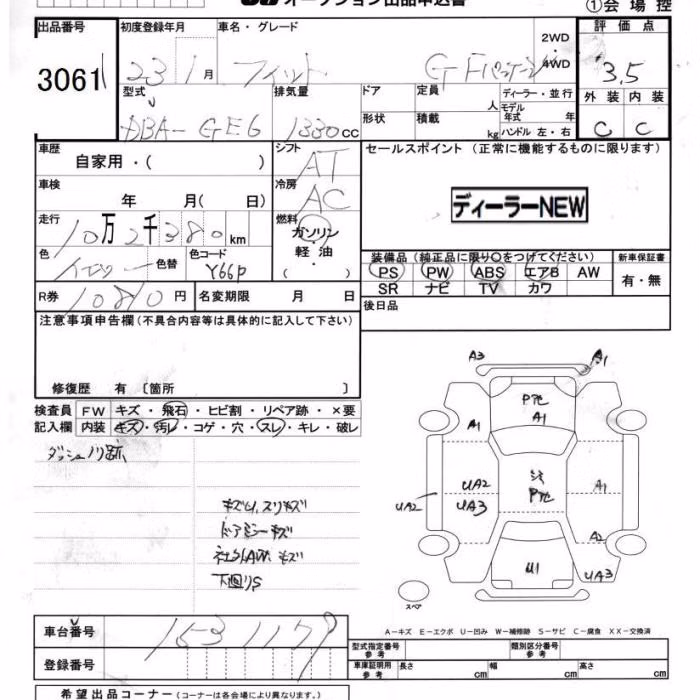 オークション出品申込書
①会場控
出品番号 初度登録年月 車名・グレード 評価点
3061 23 1月 フィット 2WD 4WD 3.5
型式 排気量 ドア 定員 人 ディーラー・並行 外装 内装
モデル年式 年
DBA-GE6 1330cc 形状 積載 kg ハンドル 左・右 C C
車歴 シフト セールスポイント (正常に機能するものに限ります)
自家用・( ) AT
車検 冷房
年 月( 日) AC ディーラーNEW
走行 燃料
10万2千380km ガソリン
軽油
・( )
色 色替 色コード 装備品 (純正品に限り○をつけてください) 新車保証書
Y66P PS PW ABS エアB AW 有・無
SR ナビ TV カワ
R券 10810円 名変期限 月 日 後日品
注意事項申告欄 (不具合内容等は具体的に記入して下さい)
修復歴 有 〔箇所 〕
検査員 FW キズ・飛石・ヒビ割・リペア跡・×要
記入欄 内装 キズ・汚レ・コゲ・穴・スレ・キレ・破レ
ダッシュノリ跡
キズ凹、スリキズ
ドアミラーキズ
社外AW キズ
下回りS
A3 A1
P他
A1
A1
UA2 シミ A1
UA2 UA3 P他
A2
U1 UA3
スペア
A-キズ E-エクボ U-凹み W-補修跡 S-サビ C-腐食 XX-交換済
車台番号 1531179
型式指定番号 参考 類別区分番号 参考
登録番号 車庫証明用 参考 長さ cm 幅 cm 高さ cm
希望出品コーナー (コーナーは各会場により異なります。)